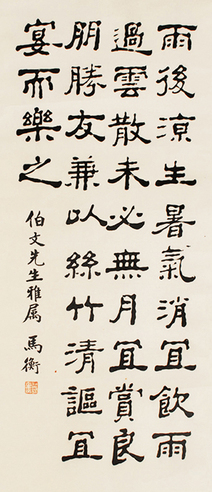 雨後涼生暑氣消宜飲雨
過雲散未必無月宜賞良
朋勝友兼以絲竹清謳宜
宴而樂之
伯文先生雅属 馬衡